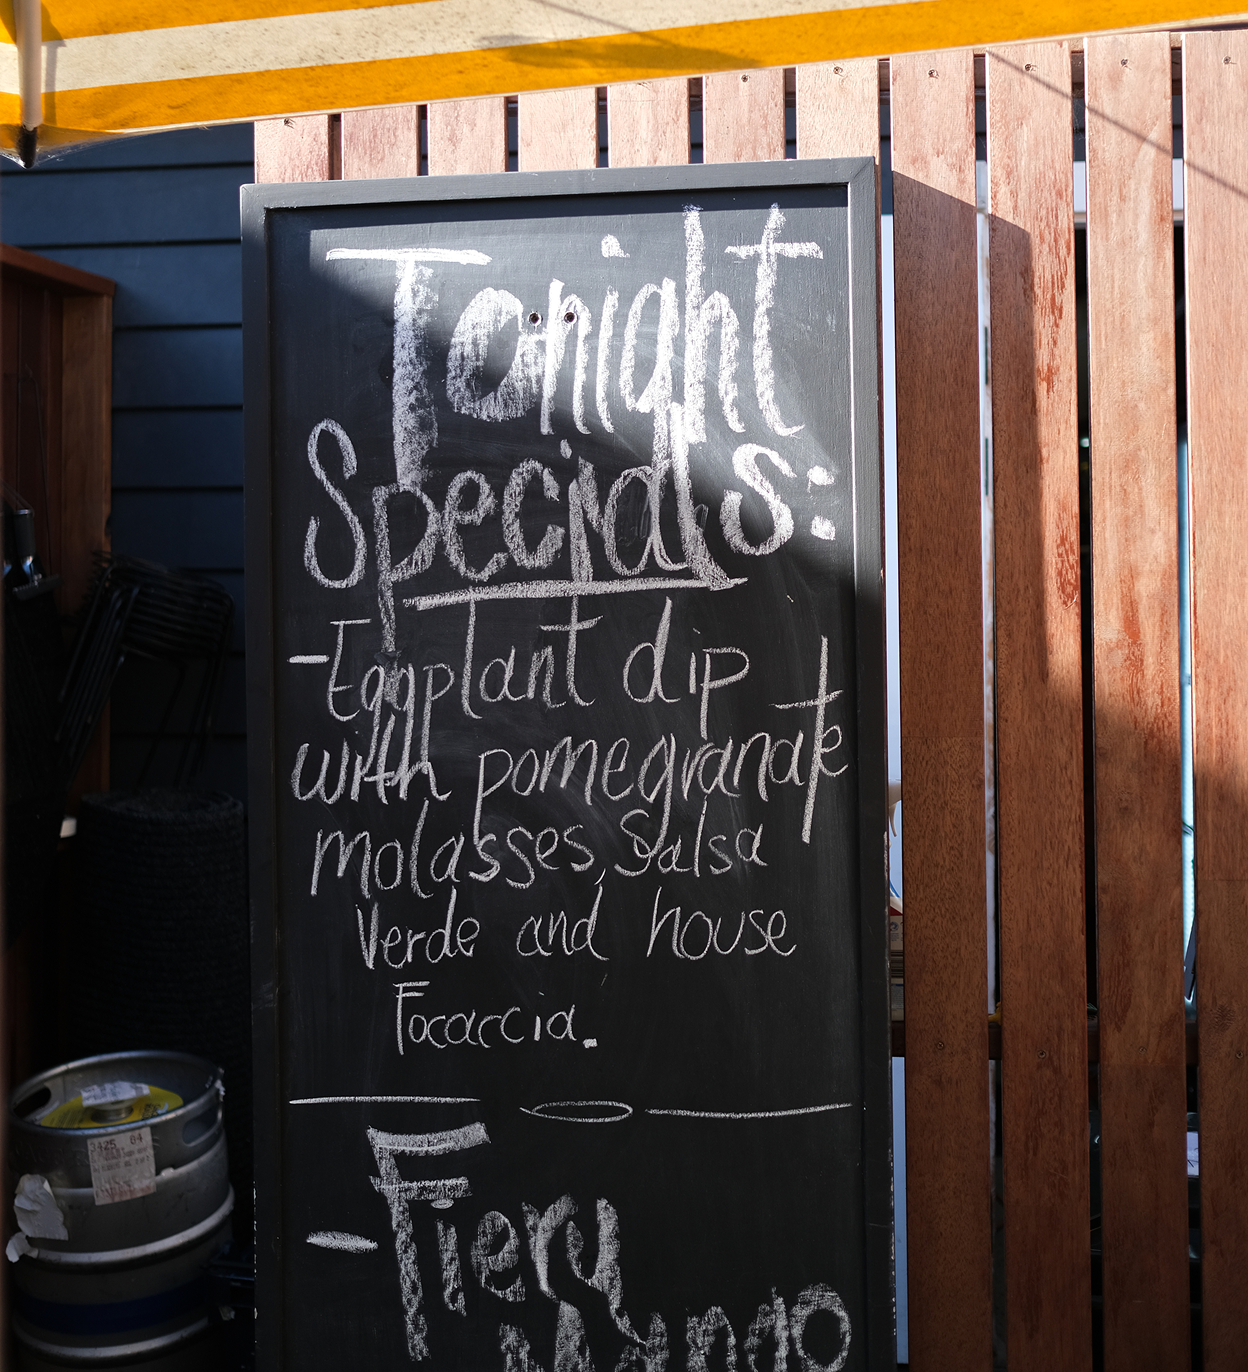 Tonight
Specials:
-Eggplant dip
with pomegranate
molasses, Salsa
Verde and house
Focaccia.
- Fiery
Mango
3425 04